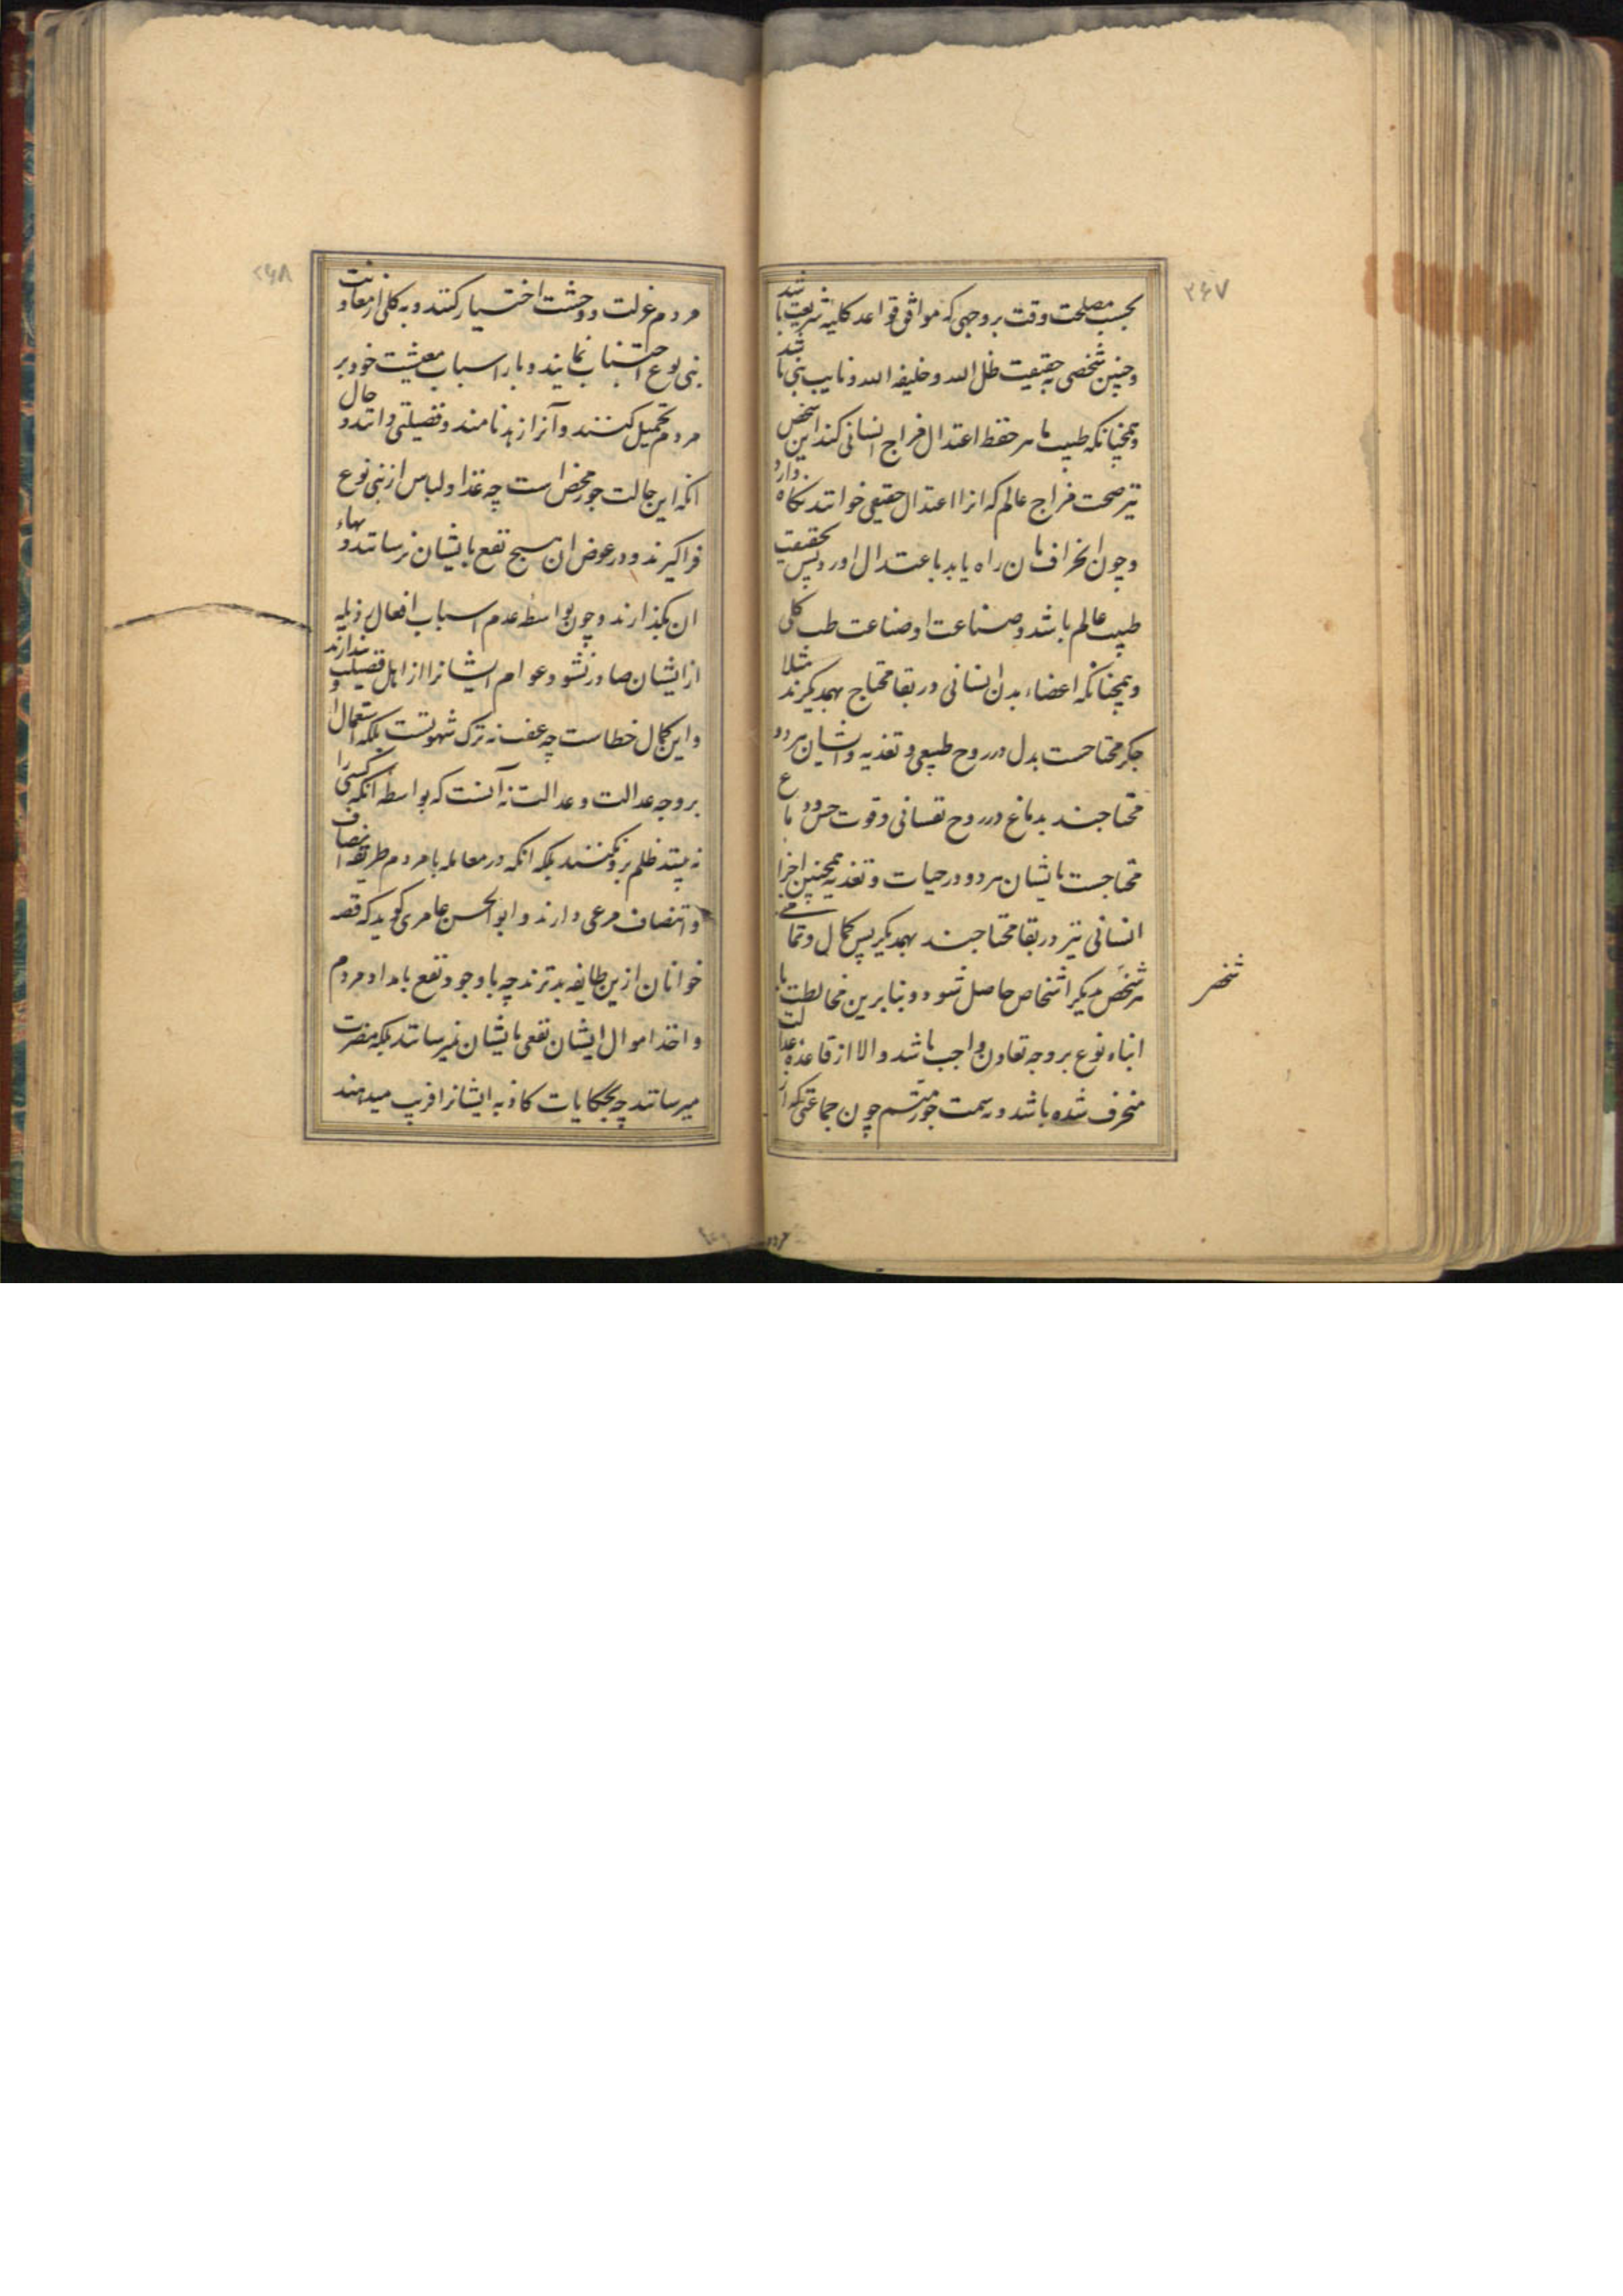 ۲۶۷
بحسب مصلحت وقت بروجهی که موافق قواعد کلیه شریعت باشد
و چنین شخصی بحقیقت ظل الله و خلیفه الله و نایب نبی باشد
و همچنانکه طبیب ماهر حفظ اعتدال مزاج انسانی کند این شخص
نیز صحت مزاج عالم که انرا اعتدال حقیقی خوانند نگاه دارد
و چون انحراف بان راه یابد باعتدال اورد پس بحقیقت
طبیب عالم باشد و صناعت او صناعت طب کلی
و همچنانکه اعضاء بدن انسانی در بقا محتاج بهمدیگرند مثلا
جگر محتاجست بدل در روح طبیعی و تغذیه و ایشان هر دو
محتاجند بدماغ در روح نفسانی و قوت حس و دماغ
محتاجست بایشان هر دو در حیات و تغذیه همچنین اجزا
انسانی نیز در بقا محتاجند بهمدیگر پس کمال و تمامی
هر شخص بدیگر اشخاص حاصل شود و بنا برین مخالطت با
ابناء نوع بر وجه تعاون واجب باشد و الا از قاعده عدالت
منحرف شده باشد و بسمت جور متسم چون جماعتی که از
شخص
مردم
۲۶۸
مردم عزلت و وحشت اختیار کنند و به کلی از معاونت
بنی نوع اجتناب نمایند و بار اسباب معیشت خود بر
مردم تحمیل کنند و آنرا زهد نامند و فضیلتی دانند و حال
انکه این حالت جور محض است چه غذا و لباس از بنی نوع
فراگیرند و در عوض ان هیچ نفع بایشان نرسانند و بهاء
ان نگذارند و چون بواسطه عدم اسباب افعال رذیله
از ایشان صادر نشود عوام ایشانرا از اهل فضیلت پندارند و
این کمال خطاست چه عفت نه ترک شهوتست بلکه استعمال
بروجه عدالت و عدالت نه آنست که بواسطه انکه کسی را
نه بینند ظلم برو نکنند بلکه انکه در معامله با مردم طریقه انصاف
و انتصاف مرعی دارند و ابو الحسن عامری گوید که قصه
خوانان ازین طایفه بدترند چه با وجود نفع بامداد مردم
و اخذ اموال ایشان نفعی بایشان نمیرسانند بلکه مضرت
میرسانند چه بحکایات کاذبه ایشانرا فریب میدهند